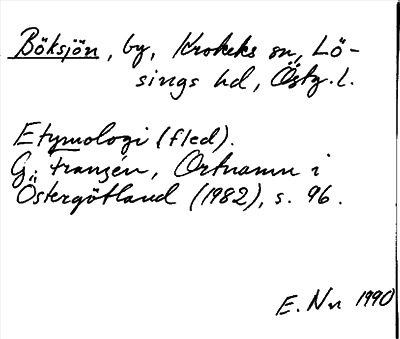 Böksjön, by, Krokeks sn, Lö-
sings hd, Östg. l.
Etymologi (fled).
G. Franzén, Ortnamn i
Östergötland (1982), s. 96.
E. Nn 1990